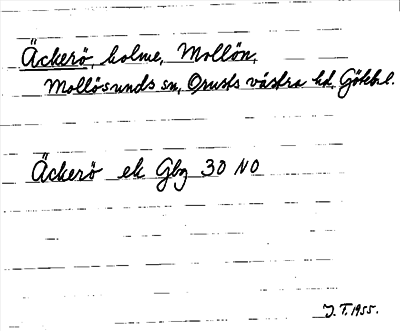 Äckerö, holme, Mollön,
Mollösunds sn, Orusts västra hd, Götebl.
Äckerö ek Gbg 30 NO
J. T. 1955.